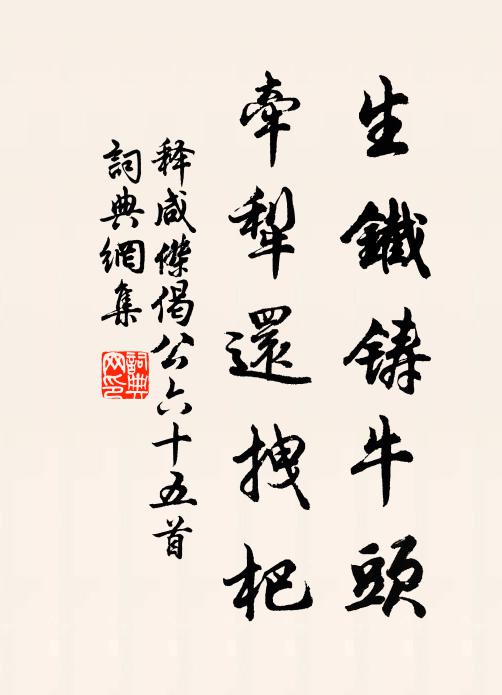 生鐵鋳牛頭
牽犁還拽杷
释咸傑偈公六十五首
詞典網集
詞典网印